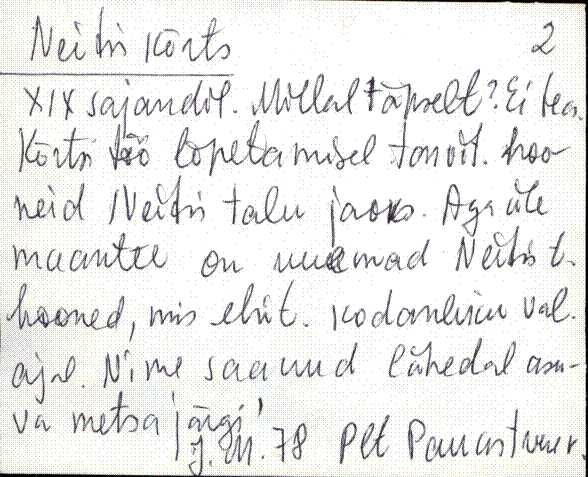 Neitsi kõrts 2
XIX sajandil. Millal täpselt? Ei tea.
Kõrtsi töö lõpetamisel tarvit. hoo-
neid Neitsi talu jaoks. Aga üle
maantee on uuemad Neitsi t.
hooned, mis ehit. kodanliku val.
ajal. Nime saanud lähedal asu-
va metsa järgi,
J. M. 78 Plt